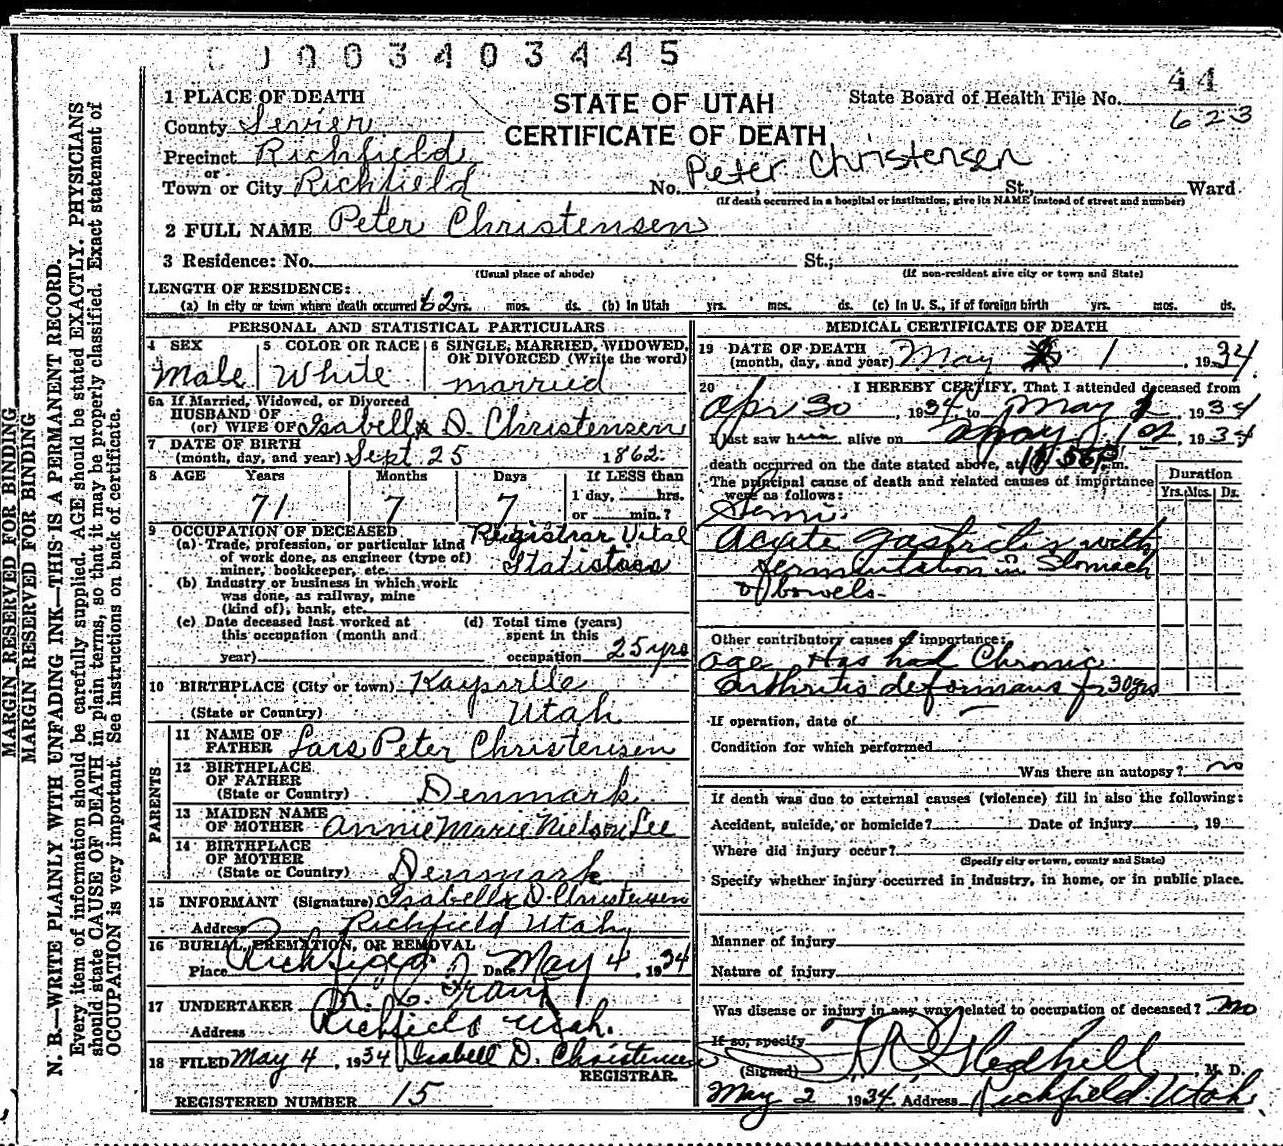 0003403445
44
1 PLACE OF DEATH
STATE OF UTAH
State Board of Health File No.
623
County Sevier
CERTIFICATE OF DEATH
Precinct Richfield
or
Town or City Richfield No. Peter Christensen St., Ward
(If death occurred in a hospital or institution, give its NAME instead of street and number)
2 FULL NAME Peter Christensen
3 Residence: No. St.,
(Usual place of abode) (If non-resident give city or town and State)
LENGTH OF RESIDENCE:
(a) In city or town where death occurred 62 yrs. mos. ds. (b) In Utah yrs. mos. ds. (c) In U. S., if of foreign birth yrs. mos. ds.
PERSONAL AND STATISTICAL PARTICULARS
4 SEX 5 COLOR OR RACE 6 SINGLE, MARRIED, WIDOWED,
OR DIVORCED (Write the word)
Male White married
6a If Married, Widowed, or Divorced
HUSBAND OF
(or) WIFE OF Isabella D. Christensen
7 DATE OF BIRTH
(month, day, and year) Sept. 25 1862
8 AGE Years Months Days If LESS than
1 day, hrs.
71 7 7 or min.?
9 OCCUPATION OF DECEASED Registrar Vital
(a) Trade, profession, or particular kind
of work done, as engineer (type of)
miner, bookkeeper, etc.
(b) Industry or business in which work
was done, as railway, mine
(kind of), bank, etc.
(c) Date deceased last worked at (d) Total time (years)
this occupation (month and spent in this
year) occupation 25 yrs
10 BIRTHPLACE (City or town) Kaysville
(State or Country) Utah
PARENTS
11 NAME OF
FATHER Lars Peter Christensen
12 BIRTHPLACE
OF FATHER
(State or Country) Denmark
13 MAIDEN NAME
OF MOTHER Annie Marie Nielson Lee
14 BIRTHPLACE
OF MOTHER
(State or Country) Denmark
15 INFORMANT (Signature) Isabella D. Christensen
Address Richfield Utah
16 BURIAL, CREMATION, OR REMOVAL
Place Richfield Date May 4, 1934
17 UNDERTAKER
Address Richfield Utah.
18 FILED May 4, 1934 Isabell D. Christensen
REGISTRAR.
REGISTERED NUMBER 15
MEDICAL CERTIFICATE OF DEATH
19 DATE OF DEATH
(month, day, and year) May 1 1934
20 I HEREBY CERTIFY, That I attended deceased from
Apr 30, 1934, to May, 1934
I last saw him alive on May 1st, 1934
death occurred on the date stated above, at m.
The principal cause of death and related causes of importance
were as follows:
Duration
Yrs. Mos. Ds.
Acute gastritis with
fermentation in Stomach
bowels.
Other contributory causes of importance:
age Has had Chronic
Arthritis deformans for 30 yrs
If operation, date of
Condition for which performed
Was there an autopsy? no
If death was due to external causes (violence) fill in also the following:
Accident, suicide, or homicide? Date of injury, 19
Where did injury occur?
(Specify city or town, county and State)
Specify whether injury occurred in industry, in home, or in public place.
Manner of injury
Nature of injury
Was disease or injury in any way related to occupation of deceased? no
If so, specify
(Signed) Gledhill, M. D.
May 2 1934. Address Richfield Utah
MARGIN RESERVED FOR BINDING
MARGIN RESERVED FOR BINDING
N. B.—WRITE PLAINLY WITH UNFADING INK—THIS IS A PERMANENT RECORD.
Every item of information should be carefully supplied. AGE should be stated EXACTLY. PHYSICIANS
should state CAUSE OF DEATH in plain terms, so that it may be properly classified. Exact statement of
OCCUPATION is very important. See instructions on back of certificate.